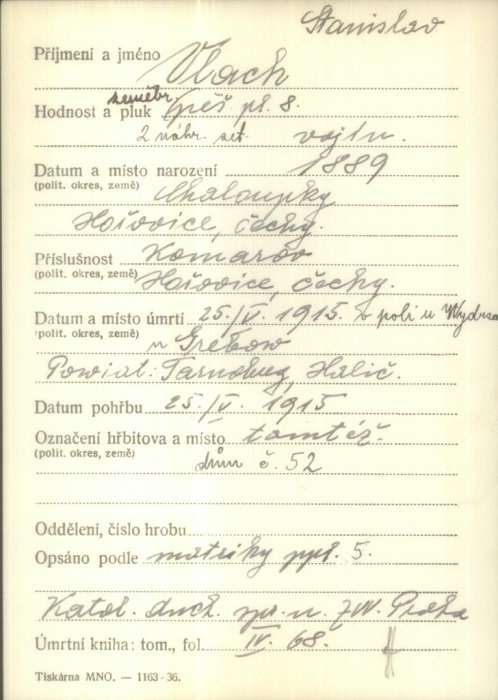 Stanislav
Příjmení a jméno Vlach
zeměbr.
Hodnost a pluk pěš. pl. 8.
2 náhr. set. vojín.
Datum a místo narození 1889
(polit. okres, země) Chaloupky
Hořovice, Čechy.
Příslušnost Komárov
(polit. okres, země) Hořovice, Čechy.
Datum a místo úmrtí 25./V. 1915. v poli u Wydrza
(polit. okres, země) u Grebow
Powiat: Tarnobrzeg, Halič.
Datum pohřbu 25./V. 1915
Označení hřbitova a místo tamtéž.
(polit. okres, země) dům č. 52
Oddělení, číslo hrobu
Opsáno podle matriky ppl. 5.
Katol. duch. spr. u ZVV. Praha
Úmrtní kniha: tom., fol. IV. 68.
Tiskárna MNO. — 1163-36.